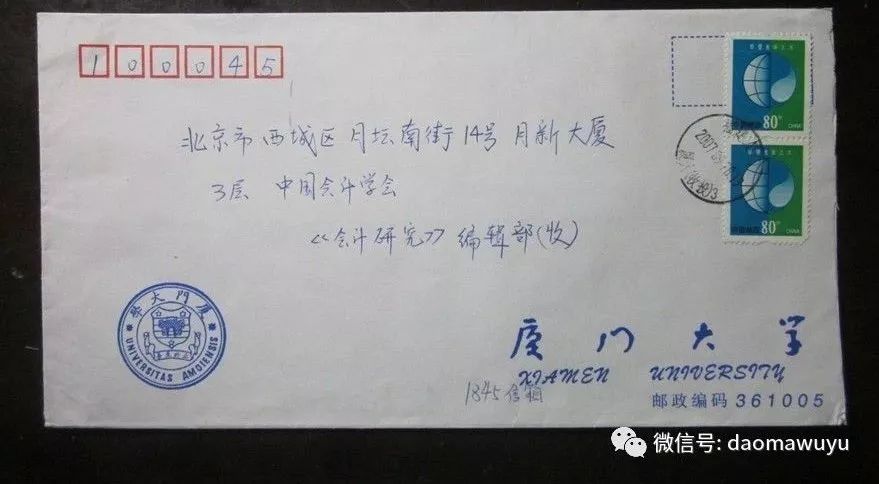 100045
北京市西城区月坛南街14号月新大厦
3层 中国会计学会
《会计研究》编辑部(收)
80分
CHINA
80分
CHINA
2007
學大門廈
UNIVERSITAS AMOIENSIS
厦门大学
XIAMEN UNIVERSITY
1845信箱
邮政编码 361005
微信号: daomawuyu